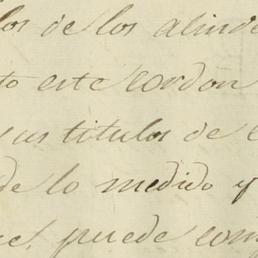 los de los alinde
to este cordon
sus titulos de
de lo medido y
puede com